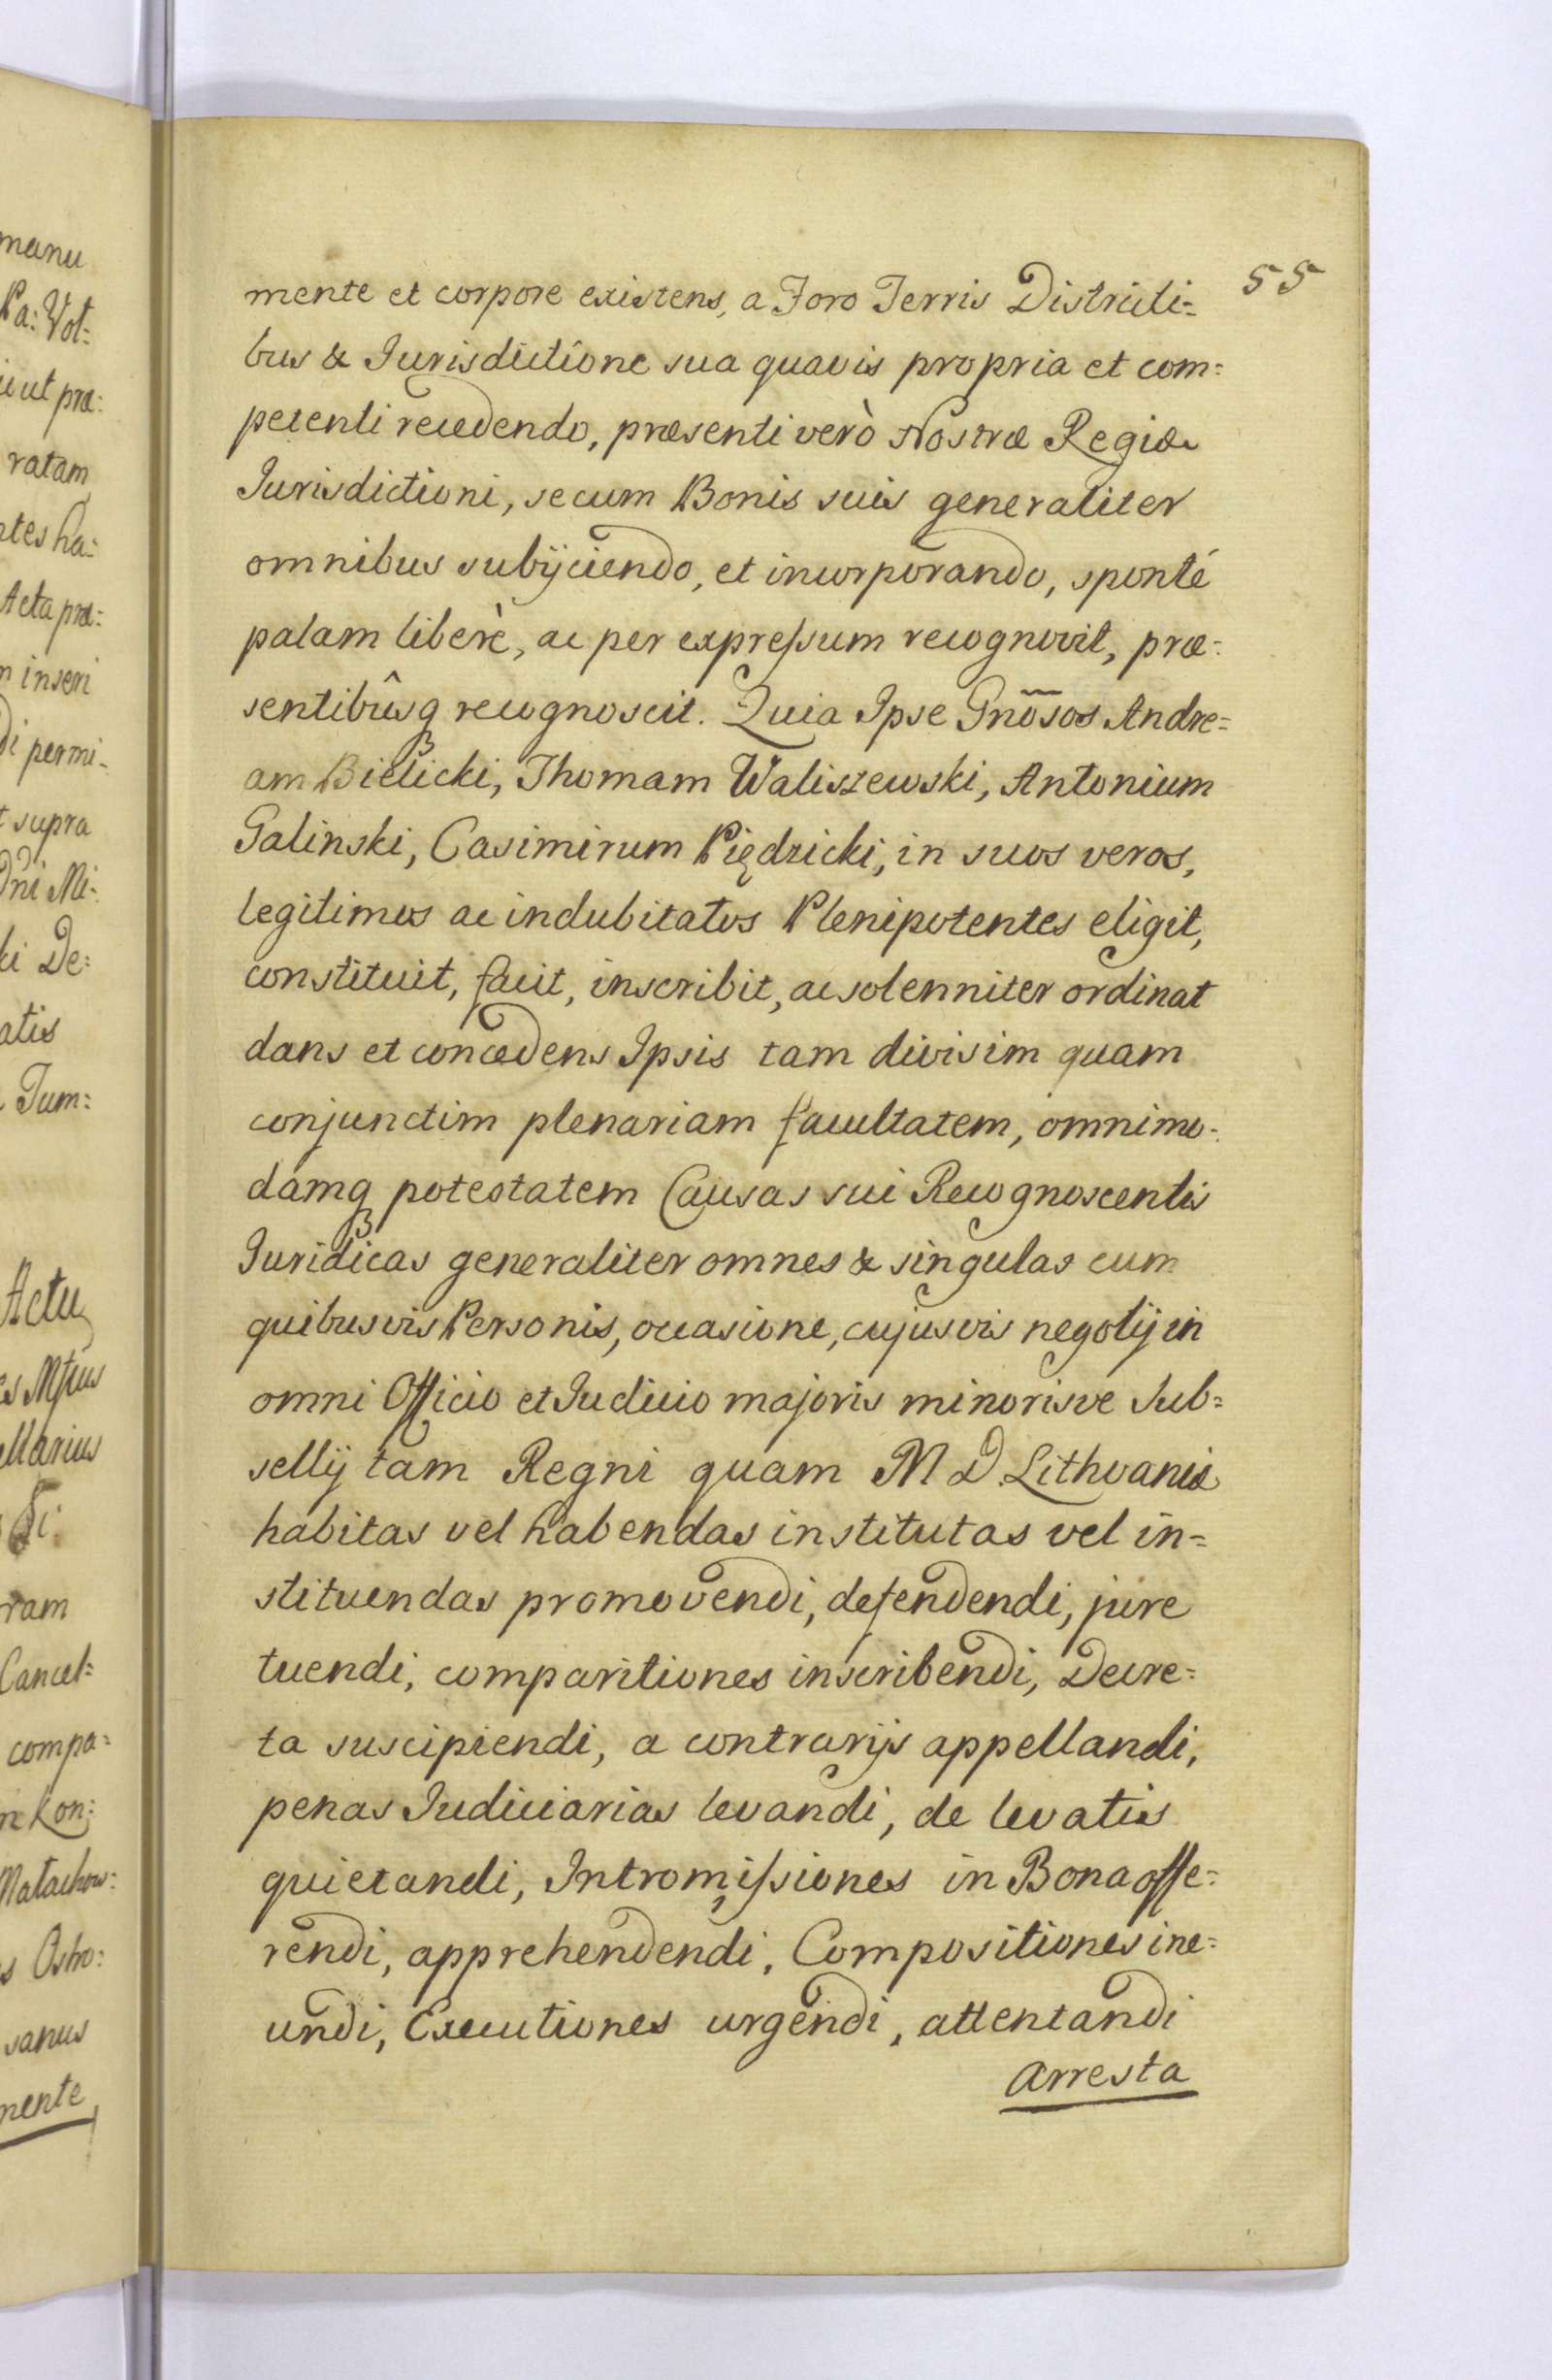 manu
Pa: Vot:
ut præ:
ratam
ntes ha:
Acta præ:
m inseri
di permi-
t supra
Dñi Mi-
ki De:
atis
Tum:
Actu
ellarius
ram
Cancel=
compa=
Kon:
Matachow:
s Ostro:
sanus
mente
55
mente et corpore existens, a Foro Terris Districti=
bus & Jurisdictione sua quavis propria et com=
petenti recedendo, præsenti verò Nostræ Regiæ
Jurisdictioni, secum Bonis suis generaliter
omnibus subijciendo, et incorporando, sponté
palam liberè, ac per expreſsum recognovit, præ=
sentibûsq recognoscit. Quia Ipse Gnõsos Andre=
am Bielicki, Thomam Waliszewski, Antonium
Galinski, Casimirum Piędzicki, in suos veros,
legitimos ac indubitatos Plenipotentes eligit,
constituit, facit, inscribit, ac solenniter ordinat
dans et concedens Ipsis tam divisim quam
conjunctim plenariam facultatem, omnimo=
damq potestatem Causas sui Recognoscentis
Juridicas generaliter omnes & singulas cum
quibusvis Personis, occasione, cujusvis negotij in
omni Officio et Judicio majoris minorisve Sub=
sellij tam Regni quam M D. Lithvaniæ
habitas vel habendas institutas vel in=
stituendas promovendi, defendendi, jure
tuendi, comparitiones inscribendi, Decre=
ta suscipiendi, a contrarijs appellandi,
penas Judiciarias levandi, de levatis
quietandi, Intromiſsiones in Bona offe=
rendi, apprehendendi, Compositiones ine=
undi, Executiones urgendi, attentandi
arresta